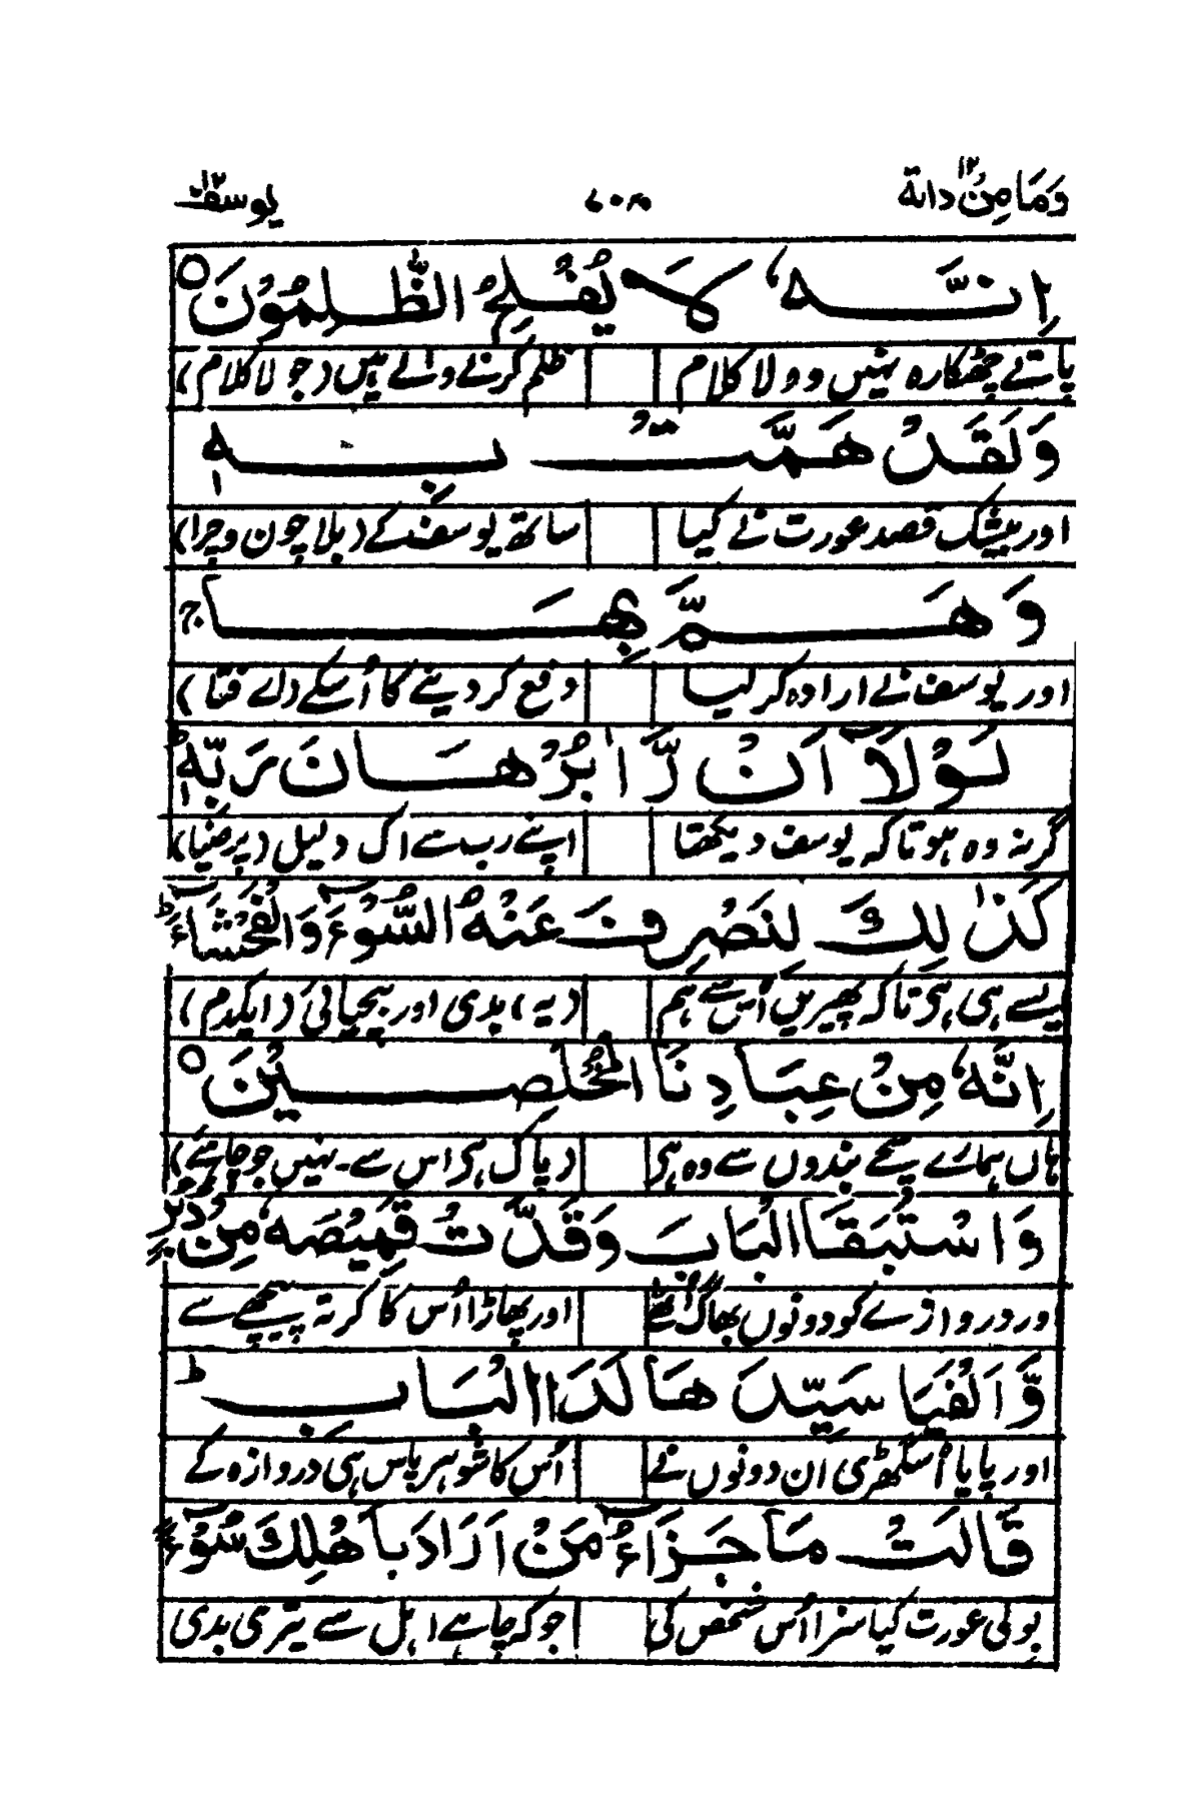 وَمَا مِنْ دابة ۱۲ ۶۰۸ یوسف ۱۲
اِنَّهٗ لَا يُفْلِحُ الظّٰلِمُوْنَ ○
پاتے چھٹکارہ نہیں وہ لا کلام ظلم کرنے والے ہیں (جو لا کلام)
وَلَقَدْ هَمَّتْ بِهٖ
اور بیشک قصد عورت نے کیا ساتھ یوسف کے (بلا چون و چرا)
وَهَمَّ بِهَا ج
اور یوسف نے ارادہ کر لیا دفع کر دینے کا اُسکے (اے فتا)
لَوْلَآ اَنْ رَّاٰ بُرْهَانَ رَبِّهٖ ط
گر نہ وہ ہوتا کہ یوسف دیکھتا اپنے رب سے اک دلیل (پر ضیا)
كَذٰلِكَ لِنَصْرِفَ عَنْهُ السُّوْٓءَ وَالْفَحْشَآءَ ط
ایسے ہی ہی تاکہ پھیریں اُس سے ہم (یہ) بدی اور بیحیائی (ایکدم)
اِنَّهٗ مِنْ عِبَادِنَا الْمُخْلَصِيْنَ ○
ہاں ہمارے سچے بندوں سے وہ ہی (پاک ہی اس سے۔ نہیں جو چاہئے)
وَاسْتَبَقَا الْبَابَ وَقَدَّتْ قَمِيْصَهٗ مِنْ دُبُرٍ
اور دروازے کو دونوں بھاگ اُٹھے اور پھاڑا اُس کا کرتہ پیچھے سے
وَّاَلْفَيَا سَيِّدَهَا لَدَا الْبَابِ ط
اور پایا اُسگھڑی ان دونوں نے اُس کا شوہر پاس ہی دروازہ کے
قَالَتْ مَا جَزَآءُ مَنْ اَرَادَ بِاَهْلِكَ سُوْٓءًا
بولی عورت کیا سزا اُس شخص کی جو کہ چاہے اہل سے تیری بدی